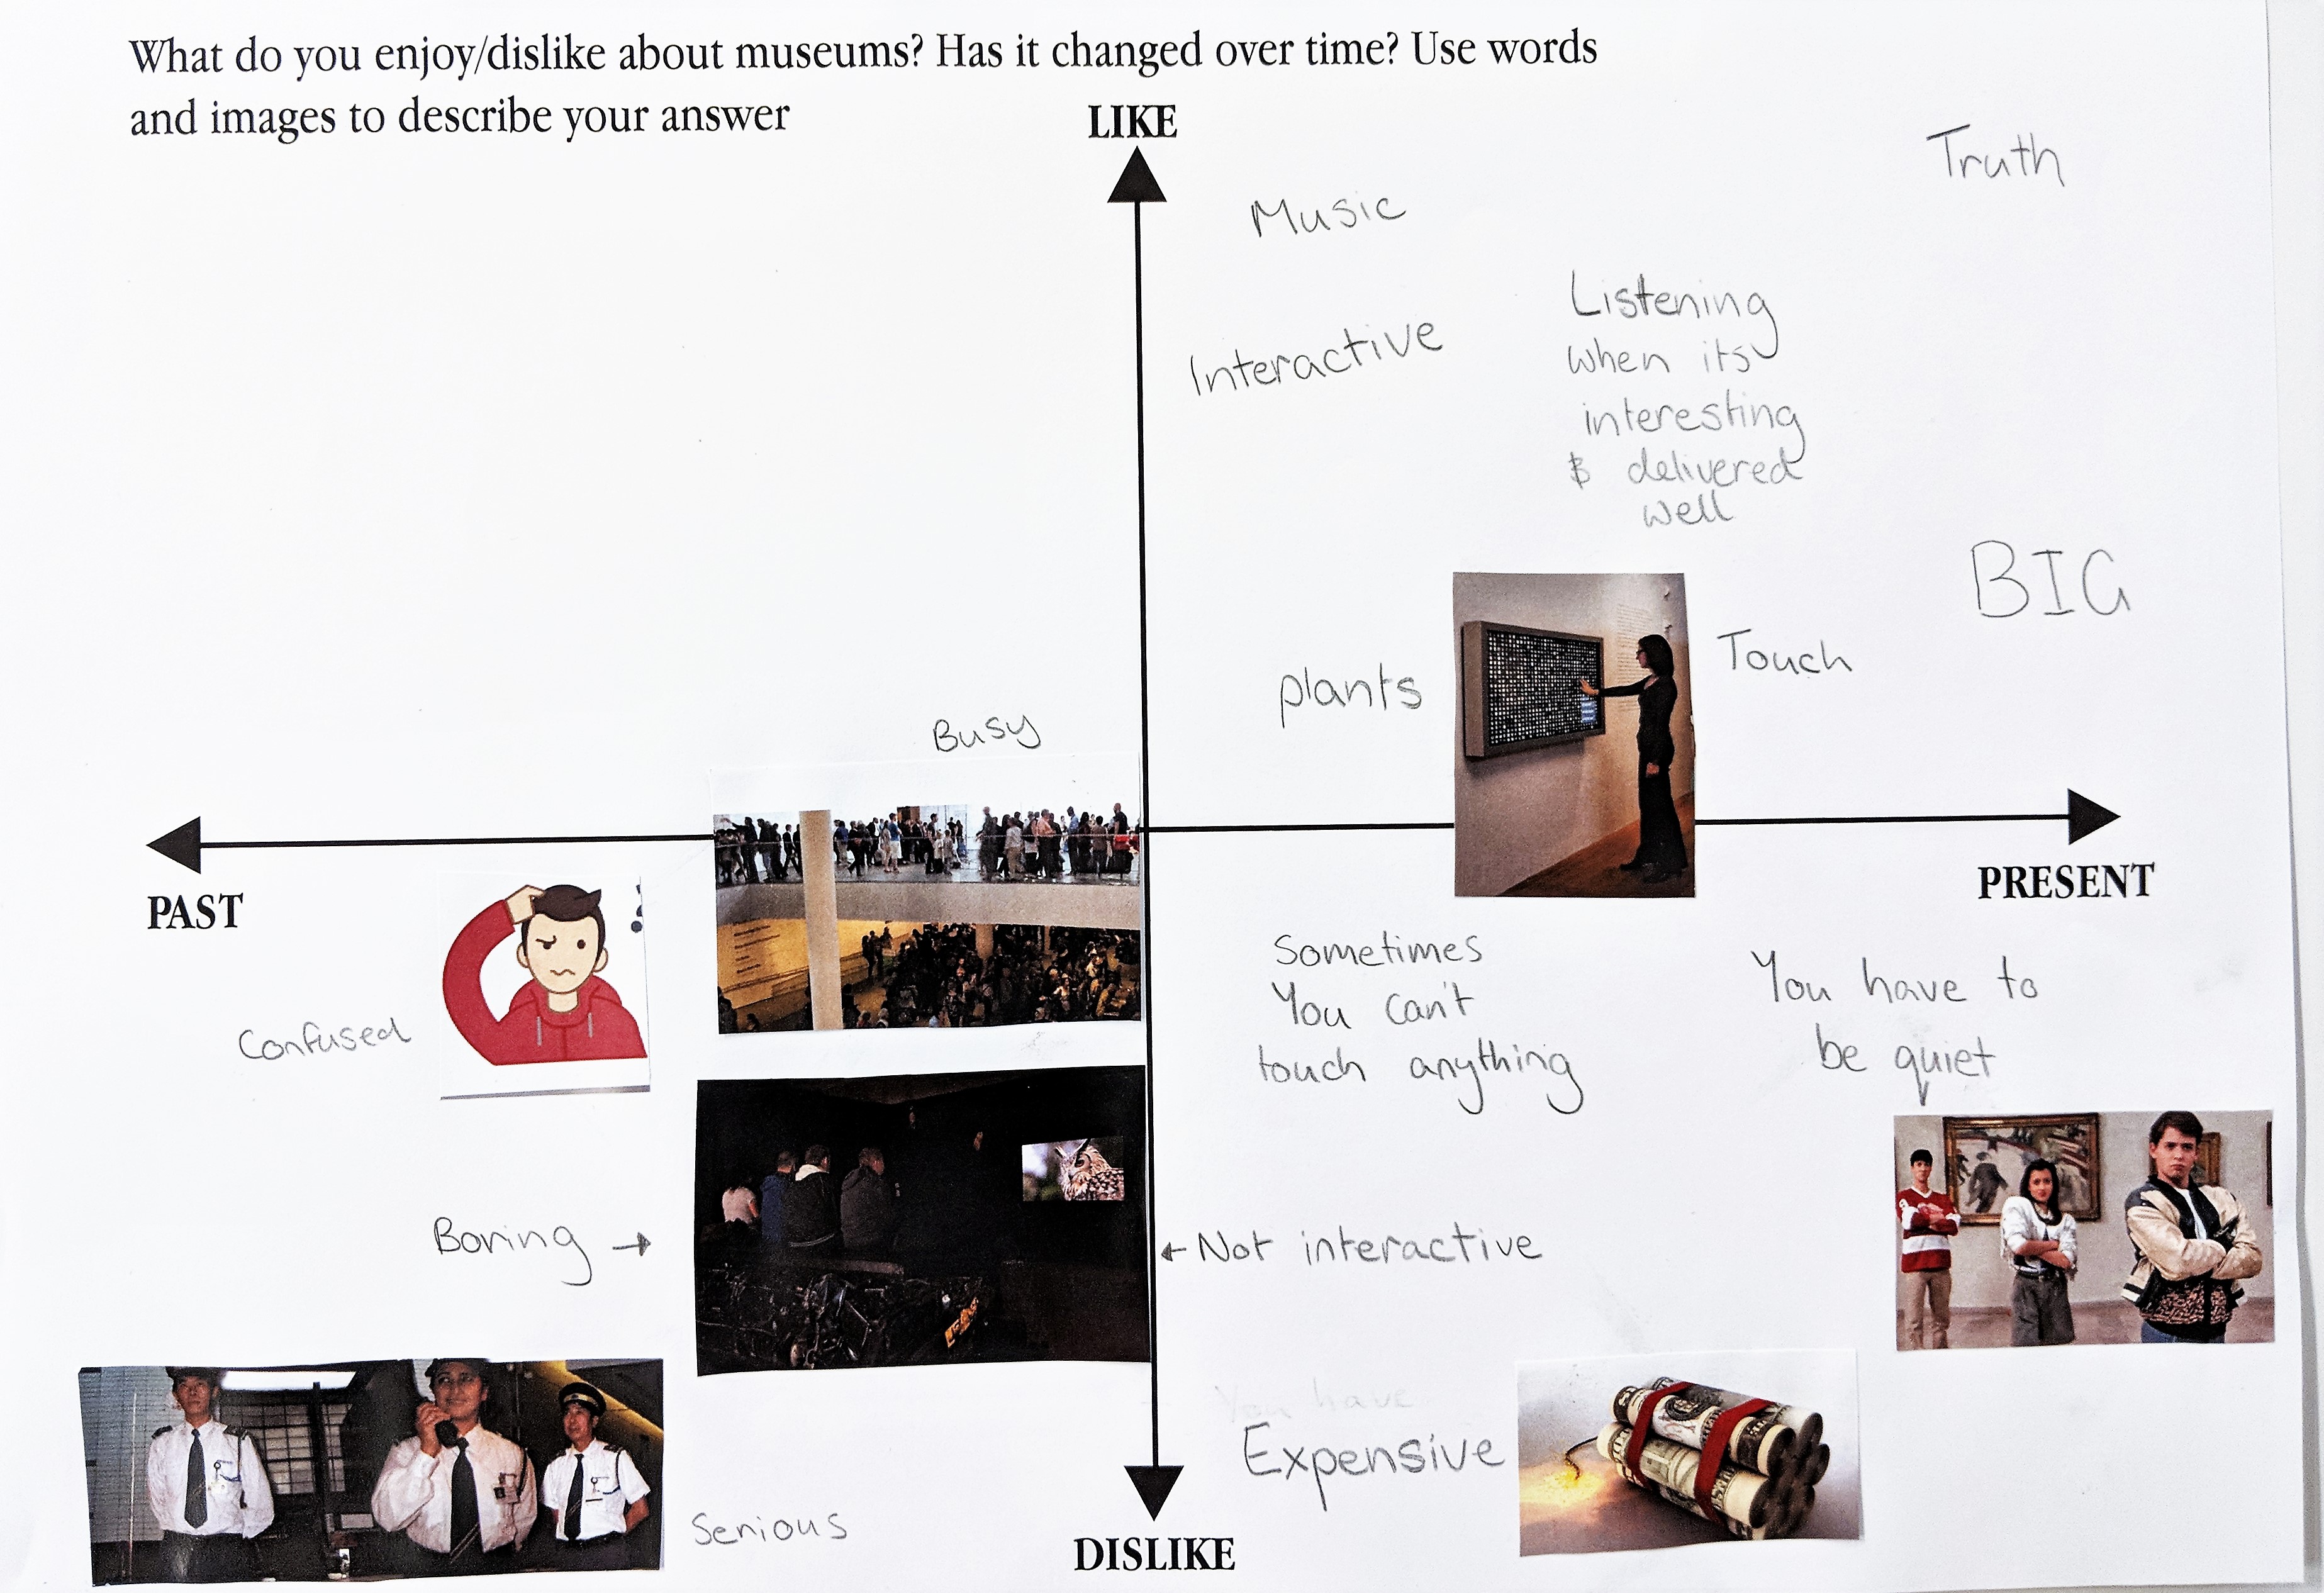 What do you enjoy/dislike about museums? Has it changed over time? Use words
and images to describe your answer
LIKE
Truth
Music
Listening
when its
interesting
& delivered
well
Interactive
BIG
Touch
plants
Busy
PAST
PRESENT
Confused
Sometimes
You can't
touch anything
You have to
be quiet
Boring →
← Not interactive
You have
Expensive
Serious
DISLIKE